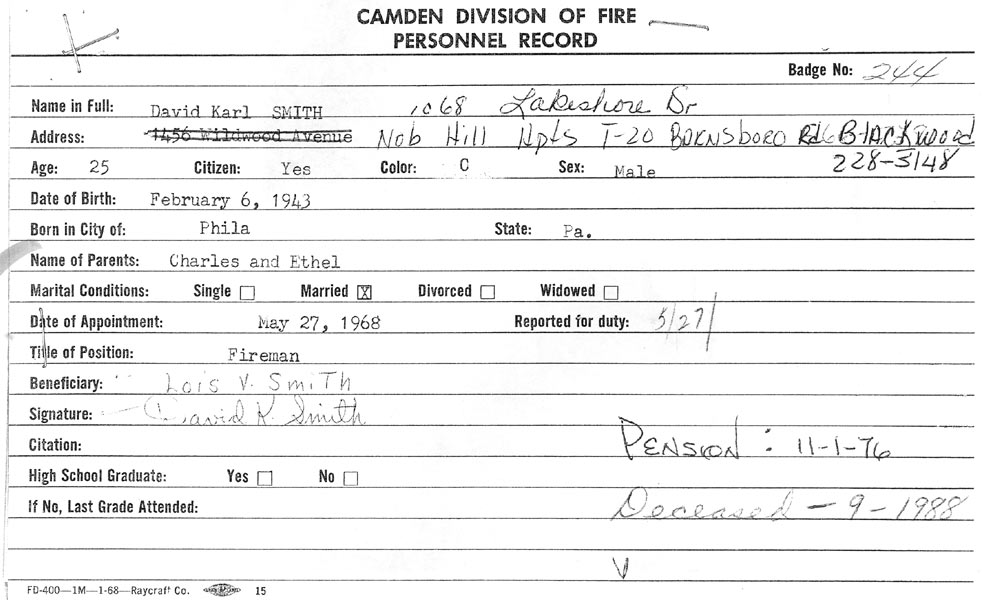 CAMDEN DIVISION OF FIRE
PERSONNEL RECORD
Badge No: 244
Name in Full: David Karl SMITH 1068 Lakeshore Dr
Address: 1456 Wildwood Avenue Nob Hill Apts T-20 Barnsboro Rd Blackwood
Age: 25 Citizen: Yes Color: C Sex: Male 228-3148
Date of Birth: February 6, 1943
Born in City of: Phila State: Pa.
Name of Parents: Charles and Ethel
Marital Conditions: Single Married X Divorced Widowed
Date of Appointment: May 27, 1968 Reported for duty: 5/27/
Title of Position: Fireman
Beneficiary: Lois V. Smith
Signature: David K. Smith
Citation: PENSION: 11-1-76
High School Graduate: Yes No
If No, Last Grade Attended: Deceased - 9 - 1988
V
FD-400—1M—1-68—Raycraft Co. 15